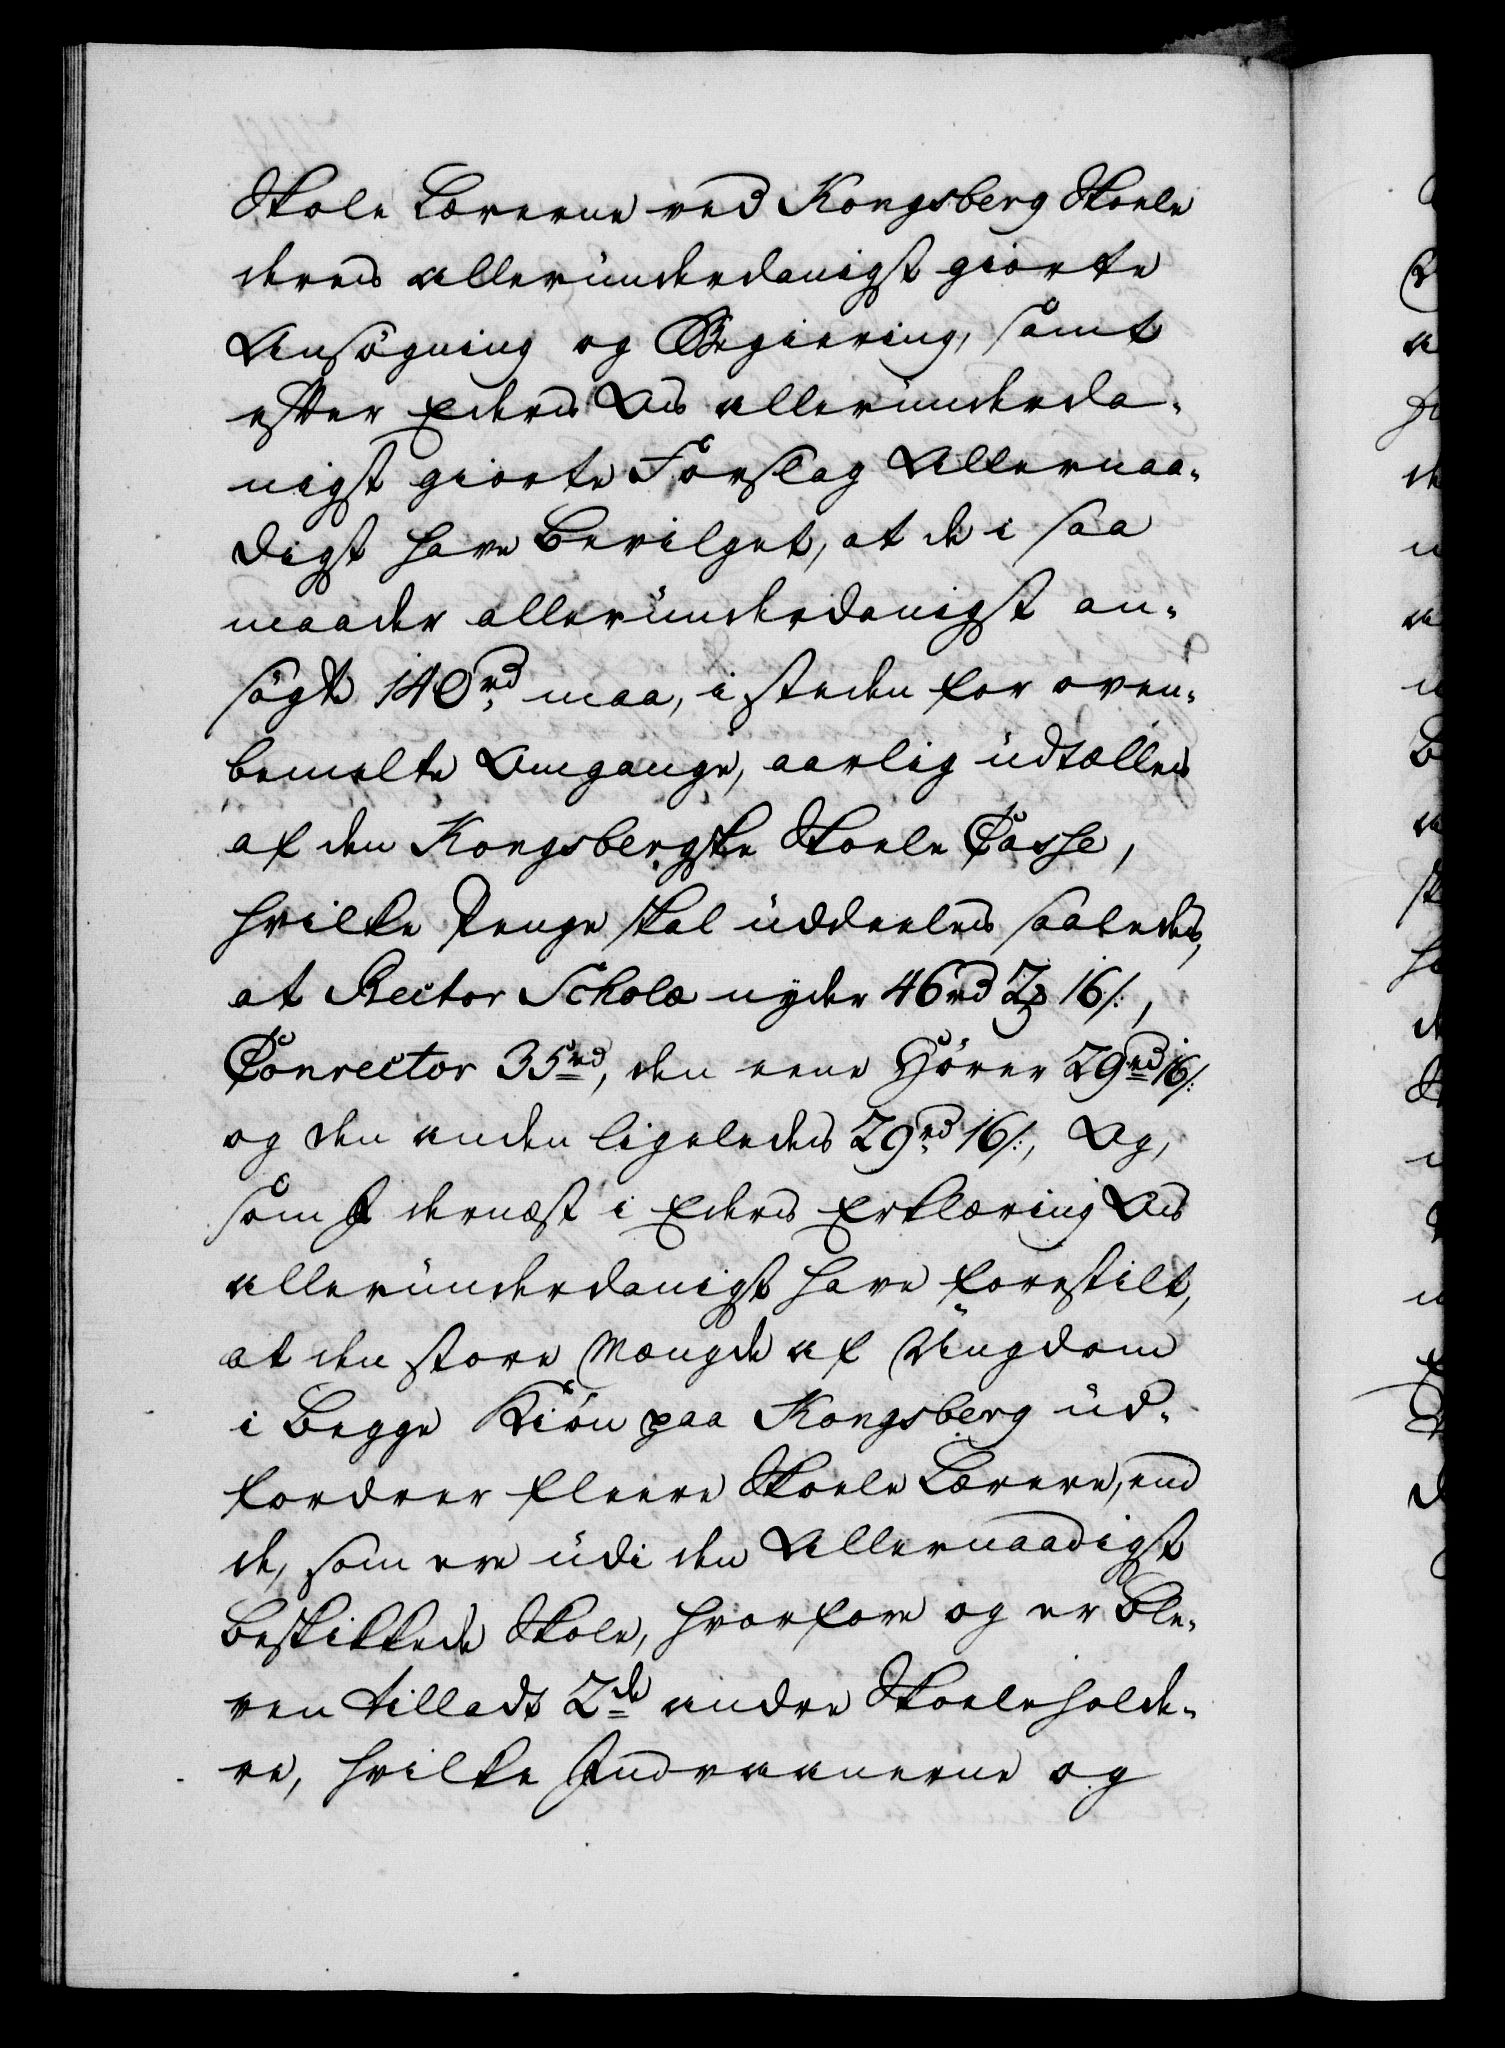 Skole Lærerne ved Kongsberg Skoele
deres allerunderdanigst giorte
Ansøgning og Begiering, samt
efter Eders Os allerunderda-
nigst giorte Forslag Allernaa-
digst have bevilget, at de i saa
maader allerunderdanigst an-
søgte 140rd maa, i steden for oven-
bemelte Omgange, aarlig udtælles
af den Kongsbergske Skoele Casse,
hvilke Penge skal uddeeles saaledes,
at Rector Scholæ nyder 46rd 2 16/:,
Conrector 35rd, den eene Hører 29rd 16/:
og den anden ligeledes 29rd 16/:, Og,
som I dernæst i Eders Erklæring Os
allerunderdanigst have forestilt,
at den store Mængde af Ungdom
i Begge Kiøn paa Kongsberg ud-
fordrer fleere Skoele Lærere, end
de, som ere udi den Allernaadigst
beskikkede Skole, hvorfore og er ble-
ven tilladt 2de andre Skoeleholde-
re, hvilke Indvaanerne og